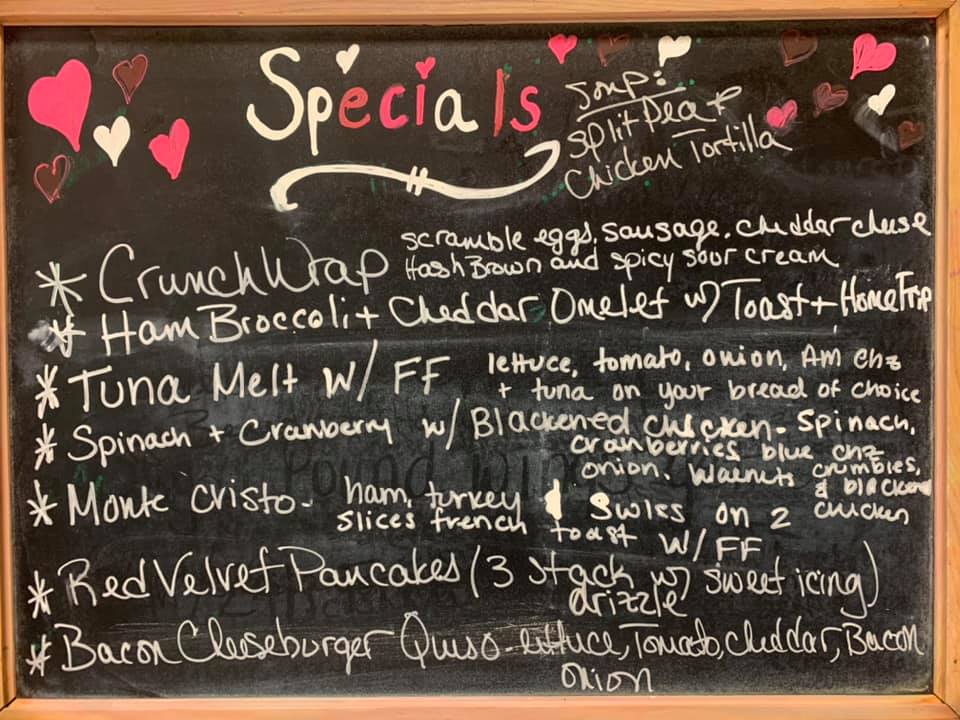 Specials
Soup:
Split Pea +
Chicken Tortilla
* CrunchWrap scramble eggs, sausage, cheddar cheese
Hash Brown and spicy sour cream
* Ham Broccoli + Cheddar Omelet w/ Toast + Home Frip
* Tuna Melt w/ FF lettuce, tomato, onion, Am chz
+ tuna on your bread of choice
* Spinach + Cranberry w/ Blackened chicken - Spinach,
cranberries blue chz
onion, walnuts crumbles,
& blackened
chicken
* Monte Cristo - ham, turkey & Swiss on 2
slices french toast w/ FF
* Red Velvet Pancakes (3 stack w/ sweet icing)
drizzle
* Bacon Cheeseburger Quiso - lettuce, Tomato, cheddar, Bacon
onion